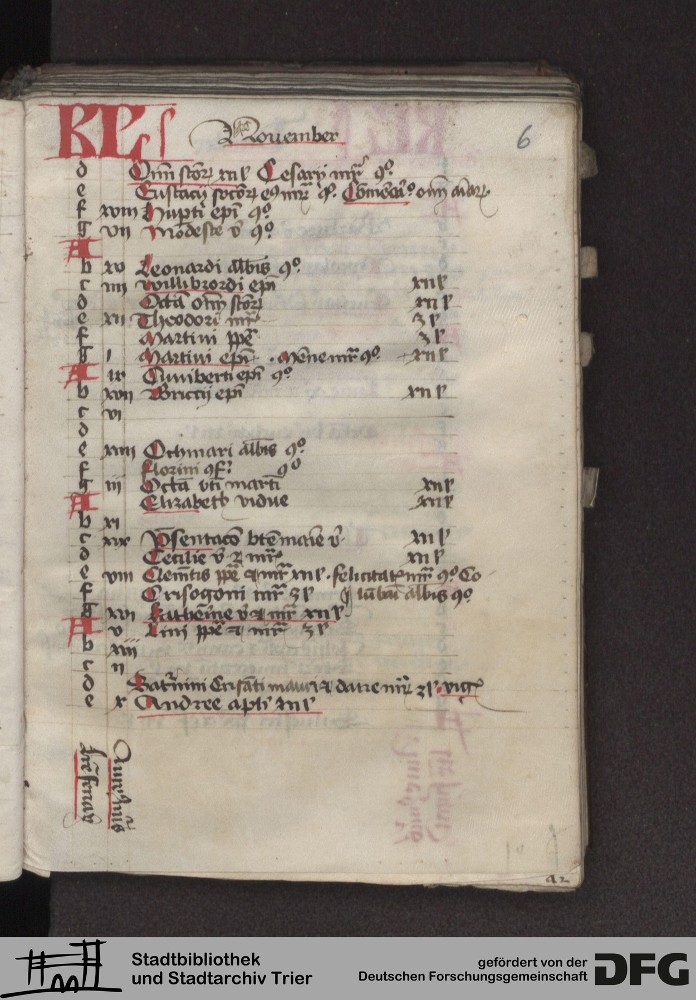 KL November 6
d Om̄ stōrͥ xii l Cesarij mr̄ 9º
e Eustacij socōrͥ eꝰ mr̄ 9º Cōmēoͣ om̄ aīarͥ
f xviii Hupti epī 9º
g vii Modeste v̄ 9º
A
b xv Leonardi abb̄is 9º
c iiii Willibrordi epī xii l
d Octā om̄ stōrͥ xii l
e xii Theodori mr̄ 3 l
f Martini pp̄e 3 l
g i Martini epī . Mēne mr̄ 9º xii l
A ix Cuniberti epī 9º
b xvii Briccij epī xii l
c vi
d
e xiiii Othmari abb̄is 9º
f Florini 9f. 9º
g iii Octā bti martī xii l
A Elizabeth vidue xii l
b xi
c xix P̄sentacō bte marie v̄ xii l
d Cecilie v̄ ⁊ mr̄ xii l
e viii Clemētis pp̄e ⁊ mr̄ xii l . felicitat mr̄ 9º Co
f Crisogoni mr̄ 3 l lūbaī abb̄is 9º
g xvi Katherine v̄ ⁊ mr̄ xii l
A v Lini pp̄e ⁊ mr̄ 3 l
b xiii
c ii
d Sat̄nini Crisāti mauri ⁊ darie mr̄ 3 l . vigͥ
e x Andree apłi xii l
a2
Stadtbibliothek
und Stadtarchiv Trier
gefördert von der
Deutschen Forschungsgemeinschaft
DFG